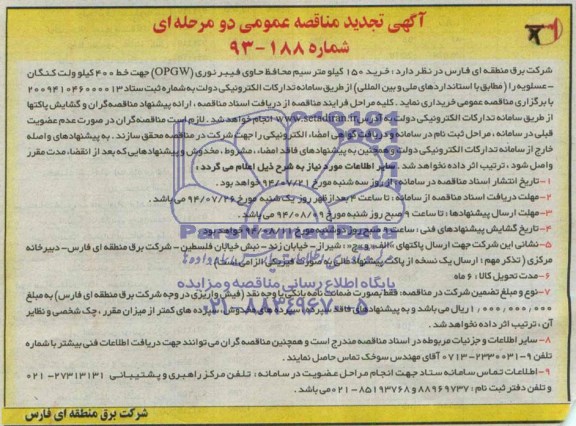 آگهی تجدید مناقصه عمومی دو مرحله ای
شماره ۱۸۸-۹۳
شرکت برق منطقه ای فارس در نظر دارد: خرید ۱۵۰ کیلو متر سیم محافظ حاوی فیبر نوری (OPGW) جهت خط ۴۰۰ کیلو ولت کنگان
-عسلویه را (مطابق با استانداردهای ملی و بین المللی) از طریق سامانه تدارکات الکترونیکی دولت به شماره ثبت ستاد
با برگزاری مناقصه عمومی خریداری نماید. کلیه مراحل فرایند مناقصه از دریافت اسناد مناقصه، ارائه پیشنهاد مناقصه گران و گشایش پاکتها
از طریق سامانه تدارکات الکترونیکی دولت به آدرس www.setadiran.ir انجام خواهد شد. لازم است مناقصه گران در صورت عدم عضویت
قبلی در سامانه، مراحل ثبت نام در سامانه و دریافت گواهی امضاء الکترونیکی را جهت شرکت در مناقصه محقق سازند. به پیشنهادهای واصله
خارج از سامانه تدارکات الکترونیکی دولت و همچنین به پیشنهادهای فاقد امضاء، مشروط، مخدوش و پیشنهادهایی که بعد از انقضاء مدت مقرر
واصل شود، ترتیب اثر داده نخواهد شد. سایر اطلاعات مورد نیاز به شرح ذیل اعلام می گردد:
۱- تاریخ انتشار اسناد مناقصه در سامانه: از روز سه شنبه مورخ ۹۴/۰۷/۲۱ خواهد بود.
۲- مهلت دریافت اسناد مناقصه از سامانه: تا ساعت ۴ بعد از ظهر روز یک شنبه مورخ ۹۴/۰۷/۲۶ می باشد.
۳- مهلت ارسال پیشنهادها: تا ساعت ۹ صبح روز شنبه مورخ ۹۴/۰۸/۰۹ می باشد.
۴- تاریخ گشایش پیشنهادهای فنی: ساعت ۹ صبح روز دوشنبه مورخ خواهد بود
۵- نشانی این شرکت جهت ارسال پاکتهای «الف، ب، ج»: شیراز- خیابان زند- نبش خیابان فلسطین- شرکت برق منطقه ای فارس- دبیرخانه
مرکزی (تذکر مهم: ارسال یک نسخه از پاکت پیشنهاد مالی به صورت فیزیکی الزامی است)
۶- مدت تحویل کالا: ۶ ماه
۷- نوع و مبلغ تضمین شرکت در مناقصه: فقط بصورت ضمانت نامه بانکی یا وجه نقد (فیش واریزی در وجه شرکت برق منطقه ای فارس) به مبلغ
۱,۰۰۰,۰۰۰,۰۰۰ ریال می باشد و به پیشنهادهای فاقد سپرده، سپرده های مخدوش، سپرده های کمتر از میزان مقرر، چک شخصی و نظایر
آن، ترتیب اثر داده نخواهد شد.
۸- سایر اطلاعات و جزئیات مربوطه در اسناد مناقصه مندرج است و همچنین مناقصه گران می توانند جهت دریافت اطلاعات فنی بیشتر با شماره
تلفن ۹-۲۳۳۰۰۳۱-۰۷۱۳ آقای مهندس سوخک تماس حاصل نمایند.
۹- اطلاعات تماس سامانه ستاد جهت انجام مراحل عضویت در سامانه: تلفن مرکز راهبری و پشتیبانی ۲۷۳۱۳۱۳۱-۰۲۱
و تلفن دفتر ثبت نام: ۸۸۹۶۹۷۳۷ و ۸۵۱۹۳۷۶۸-۰۲۱ می باشد.
شرکت برق منطقه ای فارس
پایگاه اطلاع رسانی مناقصه و مزایده
۰۲۱-۸۸۳۴۹۶۷۰-۵